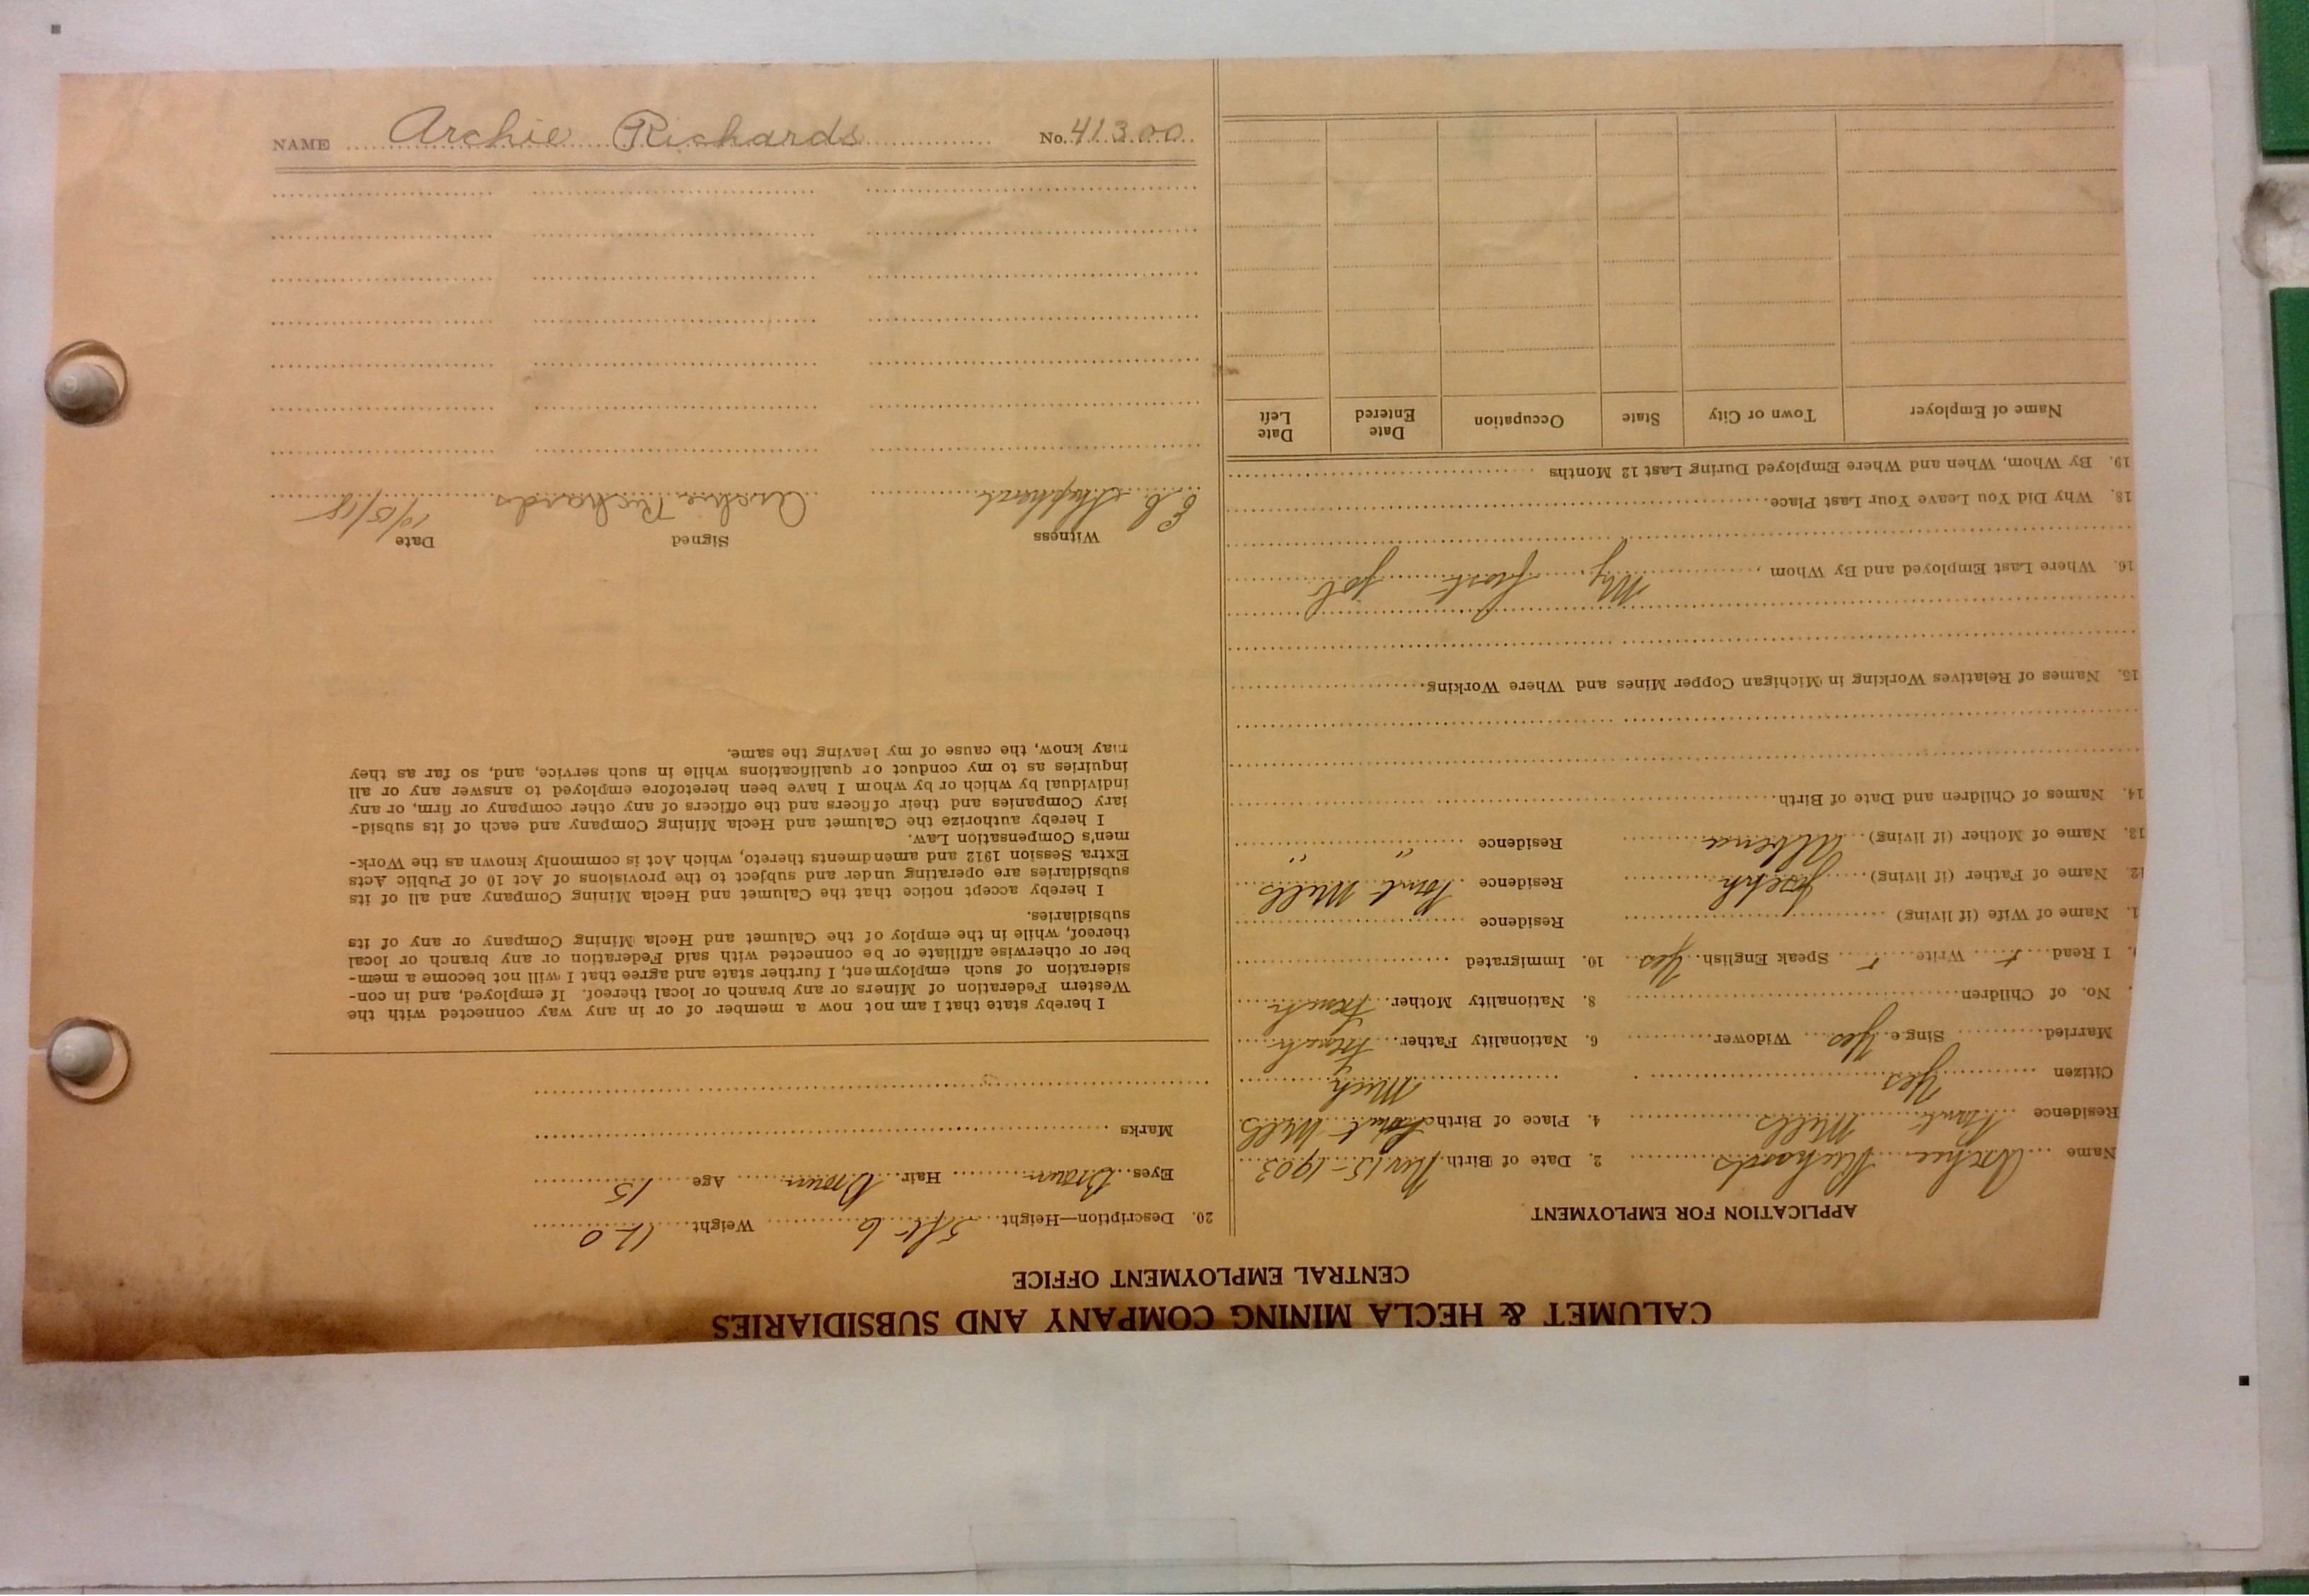 NAME Archie Richards No. 41300
CALUMET & HECLA MINING COMPANY AND SUBSIDIARIES
CENTRAL EMPLOYMENT OFFICE
APPLICATION FOR EMPLOYMENT
Name Archie Richards 2. Date of Birth Nov 15-1903
Residence Point Mills 4. Place of Birth Point Mills
Citizen Yes Mich
Married Single Yes Widower 6. Nationality Father French
No. of Children 8. Nationality Mother French
I Read Write Speak English Yes 10. Immigrated
1. Name of Wife (if living) Residence
12. Name of Father (if living) Joseph Residence Point Mills
13. Name of Mother (if living) Residence " "
14. Names of Children and Date of Birth
15. Names of Relatives Working in Michigan Copper Mines and Where Working
16. Where Last Employed and By Whom My first job
18. Why Did You Leave Your Last Place
19. By Whom, When and Where Employed During Last 12 Months
Name of Employer Town or City State Occupation Date Entered Date Left
20. Description—Height 5 ft 6 Weight 120
Eyes Brown Hair Brown Age 15
Marks
I hereby state that I am not now a member of or in any way connected with the
Western Federation of Miners or any branch or local thereof. If employed, and in con-
sideration of such employment, I further state and agree that I will not become a mem-
ber or otherwise affiliate or be connected with said Federation or any branch or local
thereof, while in the employ of the Calumet and Hecla Mining Company or any of its
subsidiaries.
I hereby accept notice that the Calumet and Hecla Mining Company and all of its
subsidiaries are operating under and subject to the provisions of Act 10 of Public Acts
Extra Session 1912 and amendments thereto, which Act is commonly known as the Work-
men's Compensation Law.
I hereby authorize the Calumet and Hecla Mining Company and each of its subsid-
iary Companies and their officers and the officers of any other company or firm, or any
individual by which or by whom I have been heretofore employed to answer any or all
inquiries as to my conduct or qualifications while in such service, and, so far as they
may know, the cause of my leaving the same.
Witness Signed Date
Archie Richards 10/5/18